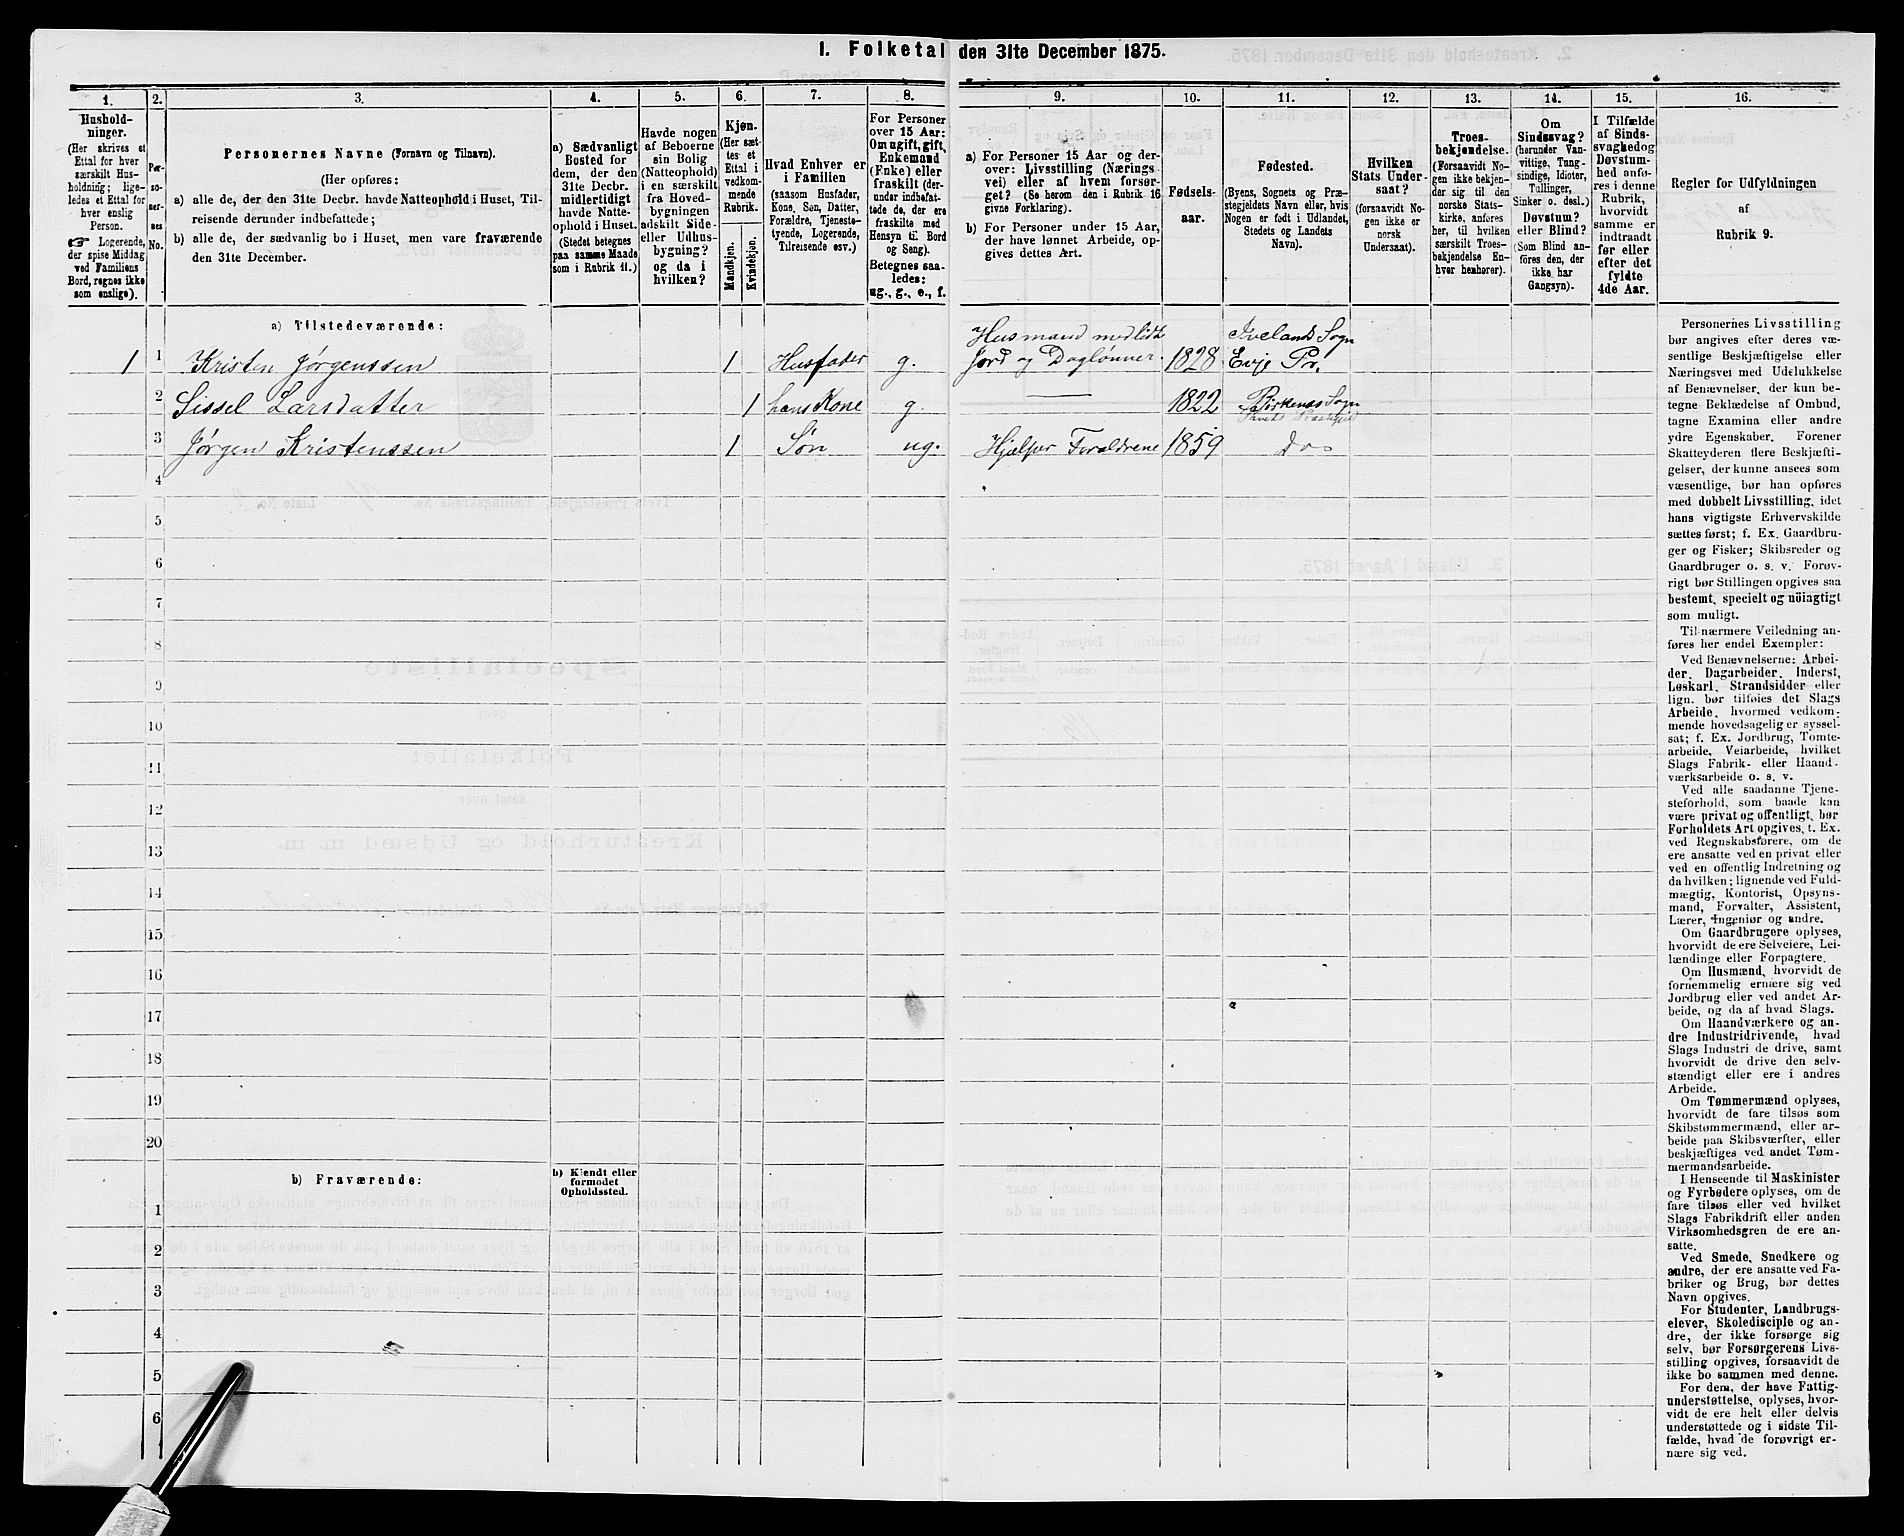 1. Folketal den 31te December 1875.
1.
2.
3.
4.
5.
6.
7.
8.
9.
10.
11.
12.
13.
14.
15.
16.
Hushold-
ninger.
(Her skrives et
Ettal for hver
særskilt Hus-
holdning; lige-
ledes et Ettal for
hver enslig
Person.
☞ Logerende,
der spise Middag
ved Familiens
Bord, regnes ikke
som enslige).
Per-
so-
ner-
nes
No.
Personernes Navne (Fornavn og Tilnavn).
(Her opføres:
a) alle de, der den 31te Decbr. havde Natteophold i Huset, Til-
reisende derunder indbefattede;
b) alle de, der sædvanlig bo i Huset, men vare fraværende
den 31te December.
a) Sædvanligt
Bosted for
dem, der den
31te Decbr.
midlertidigt
havde Natte-
ophold i Huset.
(Stedet betegnes
paa samme Maade
som i Rubrik 11.)
Havde nogen
af Beboerne
sin Bolig
(Natteophold)
i en særskilt
fra Hoved-
bygningen
adskilt Side-
eller Udhus-
bygning?
og da i
hvilken?
Kjøn.
(Her sæt-
tes et
Ettal i
vedkom-
mende
Rubrik.
Mandkjøn.
Kvindekjøn.
Hvad Enhver er
i Familien
(saasom Husfader,
Kone, Søn, Datter,
Forældre, Tjeneste-
tyende, Logerende,
Tilreisende osv.)
For Personer
over 15 Aar:
Om ugift, gift,
Enkemand
(Enke) eller
fraskilt (der-
under indbefat-
tede de, der ere
fraskilte med
Hensyn til Bord
og Seng).
Betegnes saa-
ledes:
ug., g., e., f.
a) For Personer 15 Aar og der-
over: Livsstilling (Nærings-
vei) eller af hvem forsør-
get? (Se herom den i Rubrik 16
givne Forklaring).
b) For Personer under 15 Aar,
der have lønnet Arbeide, op-
gives dettes Art.
Fødsels-
aar.
Fødested.
(Byens, Sognets og Præ-
stegjeldets Navn eller, hvis
Nogen er født i Udlandet,
Stedets og Landets
Navn).
Hvilken
Stats Under-
saat?
(forsaavidt No-
gen ikke er
norsk
Undersaat).
Troes-
bekjendelse.
(Forsaavidt No-
gen ikke bekjen-
der sig til den
norske Stats-
kirke, anføres
her, til hvilken
særskilt Troes-
bekjendelse En-
hver henhører).
Om
Sindssvag?
(herunder Van-
vittige, Tung-
sindige, Idioter,
Tullinger,
Sinker o. desl.)
Døvstum?
eller Blind?
(Som Blind an-
føres den, der
ikke har
Gangsyn).
I Tilfælde
af Sinds-
svaghed og
Døvstum-
hed anfø-
res i denne
Rubrik,
hvorvidt
samme er
indtraadt
før eller
efter det
fyldte
4de Aar.
Regler for Udfyldningen
af
Rubrik 9.
a) Tilstedeværende:
1 1 Kristen Jørgenssen 1 Husfader g. Husmand med lidt Jord og Daglønner 1828 Ivelands Sogn Evje Pr.
2 Sissel Larsdatter 1 hans Kone g. 1822 Birkenæs Sogn
3 Jørgen Kristenssen 1 Søn ug. Hjælper Forældrene 1859 do
4
5
6
7
8
9
10
11
12
13
14
15
16
17
18
19
20
b) Fraværende:
b) Kjendt eller
formodet
Opholdssted.
1
2
3
4
5
6
Personernes Livsstilling
bør angives efter deres væ-
sentlige Beskjæftigelse eller
Næringsvei med Udelukkelse
af Benævnelser, der kun be-
tegne Beklædelse af Ombud,
tagne Examina eller andre
ydre Egenskaber. Forener
Skatteyderen flere Beskjæfti-
gelser, der kunne ansees som
væsentlige, bør han opføres
med dobbelt Livsstilling, idet
hans vigtigste Erhvervskilde
sættes først; f. Ex. Gaardbru-
ger og Fisker; Skibsreder og
Gaardbruger o. s. v. Forøv-
rigt bør Stillingen opgives saa
bestemt, specielt og nöiagtigt
som muligt.
Til nærmere Veiledning an-
føres her endel Exempler:
Ved Benævnelserne: Arbei-
der, Dagarbeider, Inderst,
Løskarl, Strandsidder eller
lign. bør tilføies det Slags
Arbeide, hvormed vedkom-
mende hovedsagelig er syssel-
sat; f. Ex. Jordbrug, Tomte-
arbeide, Veiarbeide, hvilket
Slags Fabrik- eller Haand-
værksarbeide o. s. v.
Ved alle saadanne Tjene-
steforhold, som baade kan
være privat og offentligt, bør
Forholdets Art opgives, t. Ex.
ved Regnskabsførere, om de
ere ansatte ved en privat eller
ved en offentlig Indretning og
da hvilken; lignende ved Fuld-
mægtig, Kontorist, Opsyns-
mand, Forvalter, Assistent,
Lærer, Ingeniør og andre.
Om Gaardbrugere oplyses,
hvorvidt de ere Selveiere, Lei-
lændinge eller Forpagtere.
Om Husmænd, hvorvidt de
fornemmelig ernære sig ved
Jordbrug eller ved andet Ar-
beide, og da af hvad Slags.
Om Haandværkere og an-
dre Industridrivende, hvad
Slags Industri de drive, samt
hvorvidt de drive den selv-
stændigt eller ere i andres
Arbeide.
Om Tømmermænd oplyses,
hvorvidt de fare tilsøs som
Skibstømmermænd, eller ar-
beide paa Skibsværfter, eller
beskjæftiges ved andet Tøm-
mermandsarbeide.
I Henseende til Maskinister
og Fyrbødere oplyses, om de
fare tilsøs eller ved hvilket
Slags Fabrikdrift eller anden
Virksomhedsgren de ere an-
satte.
Ved Smede, Snedkere og
andre, der ere ansatte ved Fa-
briker og Brug, bør dettes
Navn opgives.
For Studenter, Landbrugs-
elever, Skoledisciple og an-
dre, der ikke forsørge sig
selv, bør Forsørgerens Livs-
stilling opgives, forsaavidt de
ikke bo sammen med denne.
For dem, der have Fattig-
understøttelse, oplyses, hvor-
vidt de ere helt eller delvis
understøttede og i sidste Til-
fælde, hvad de forøvrigt er-
nære sig ved.